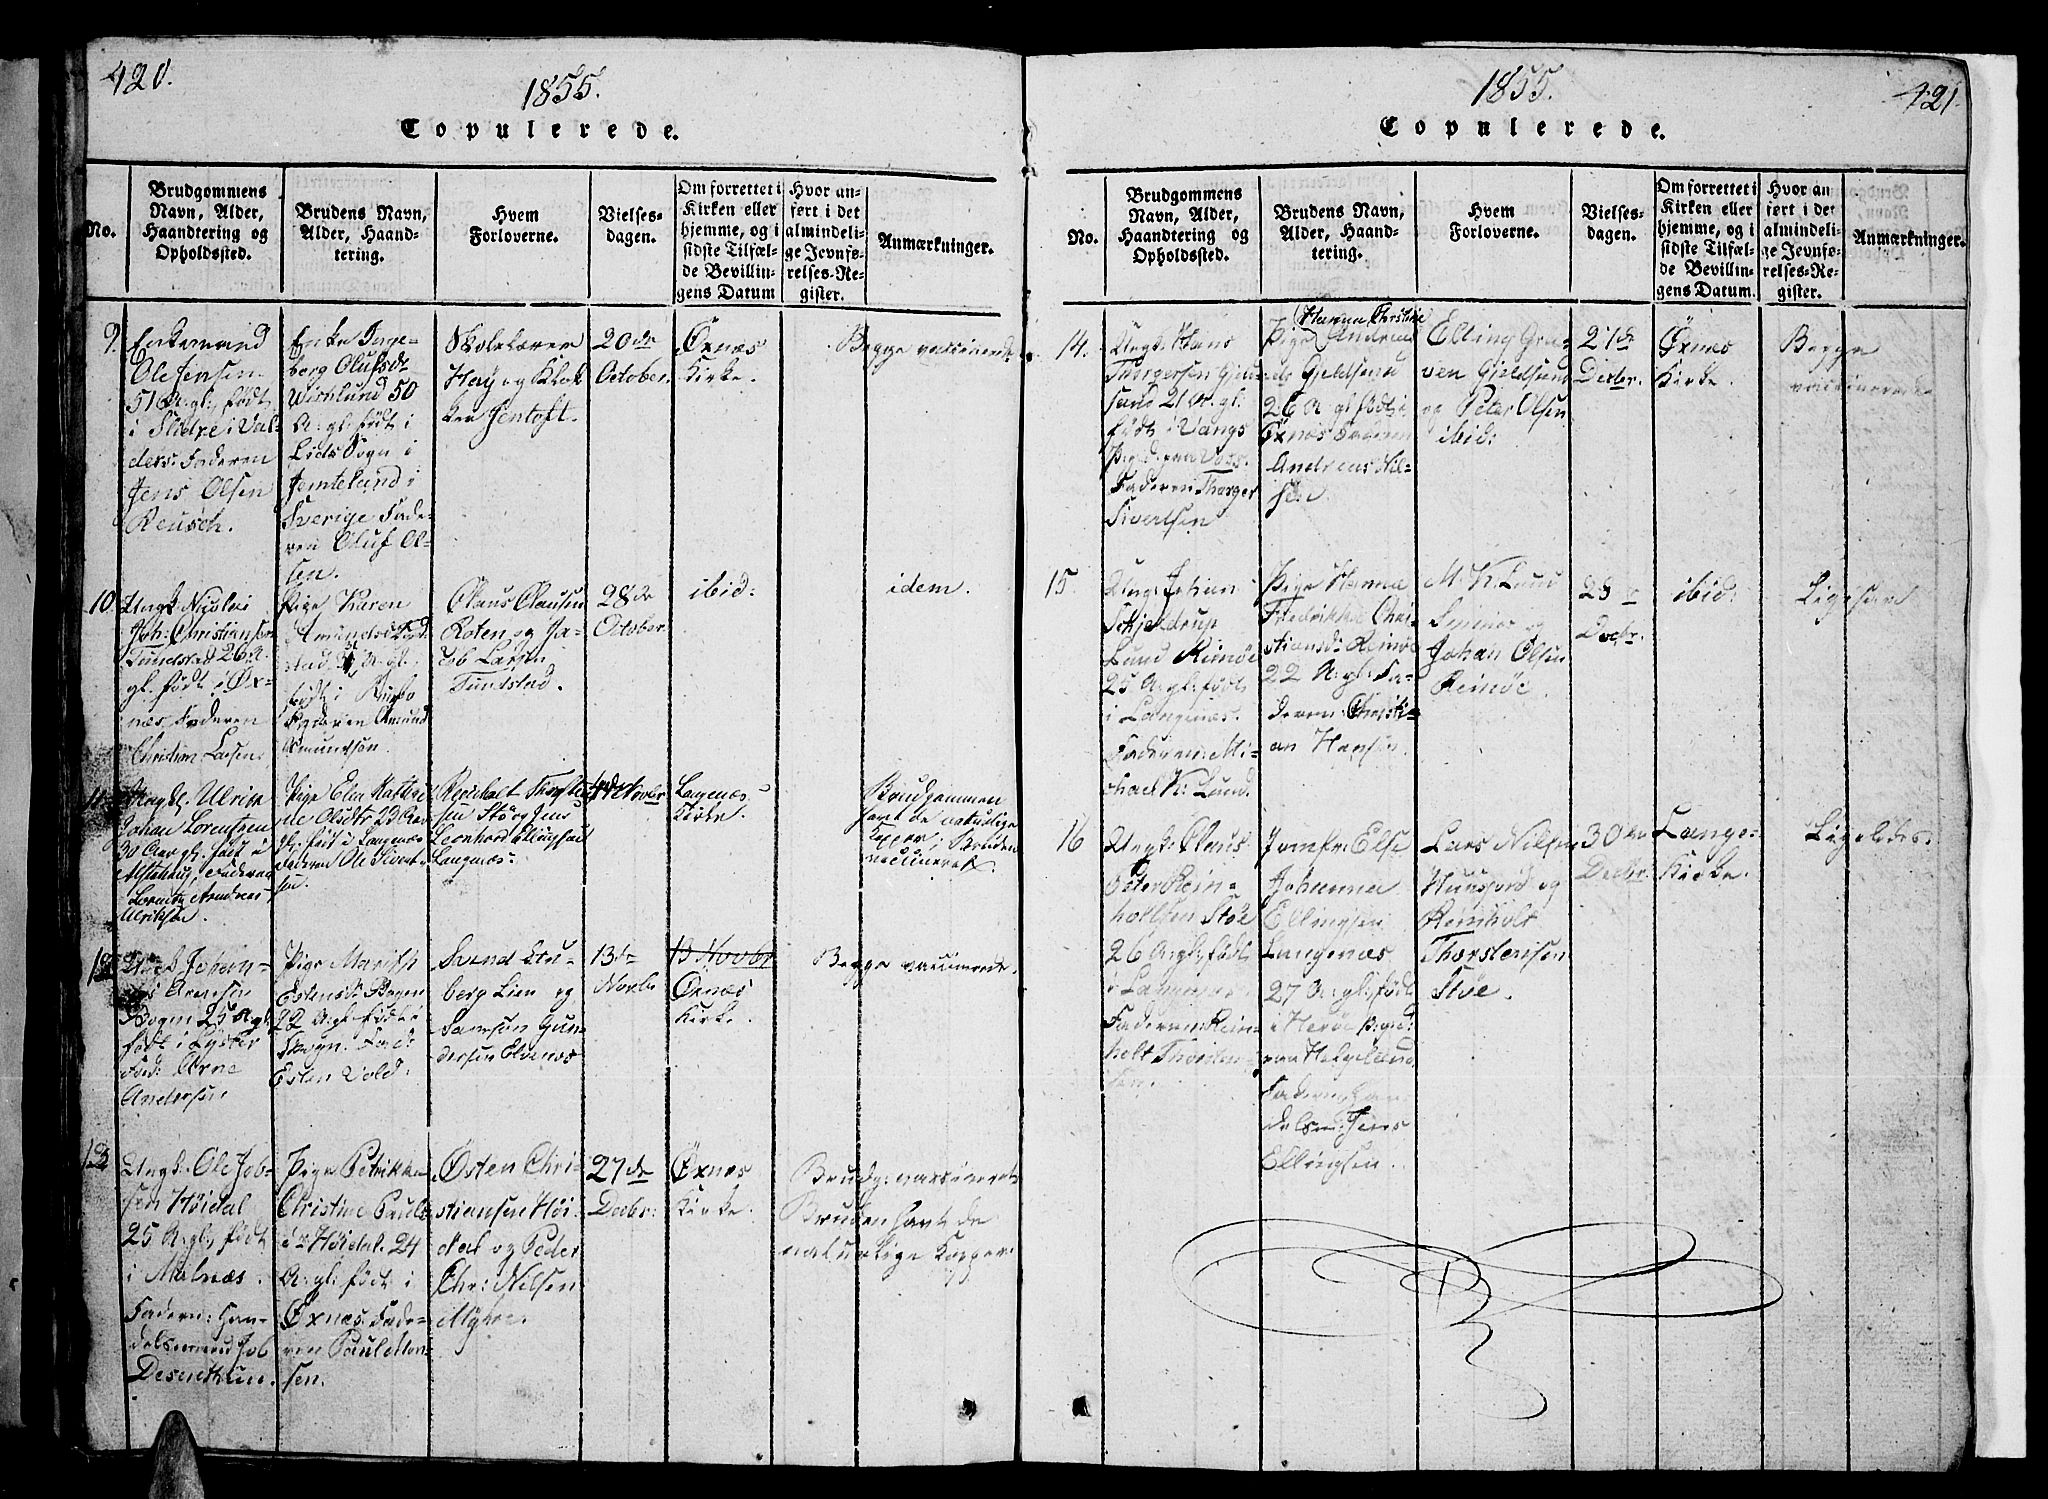 420.
1855.
Copulerede.
No.
Brudgommens
Navn, Alder,
Haandtering og
Opholdssted.
Brudens Navn,
Alder, Haand-
tering.
Hvem
Forloverne.
Vielses-
dagen.
Om forrettet i
Kirken eller
hjemme, og i
sidste Tilfæl-
de Bevillin-
gens Datum
Hvor an-
ført i det
almindeli-
ge Jevnfø-
relses-Re-
gister.
Anmærkninger.
9.
Enkemand
Ole Jensen
51 A: gl:, født
i Slidre i Val-
ders: Faderen
Jens Olsen
Reusch.
Enke Inge-
borg Olufsdr
Wiklund 50
A: gl: født i
Lids Sogn i
Jemteland i
Sverige Fade-
ren Oluf Ol-
sen.
Skolelærer
Høy og Klok-
ker Jentoft.
20de
October.
Öxnes
Kirke.
Begge vaccinerede
10.
Ungk: Nicolai
Joh: Christiansen
Tundstad 26 A:
gl: født i Öx-
næs, Faderen
Christian Larsen.
Pige Karen
Amundsd: Tund-
stad A: gl:
født i
Faderen Amund
Amundsen.
Claus Clausen
Roten og Ja-
cob Larsen
Tundstad.
28de
October
ibid:
idem.
11.
Ungk. Ulrik
Johan Lorentzen
30 Aar gl. født i
Alstahoug, Faderen
Lorentz Andreas
Ulriksen.
Pige Elen Kathri-
ne Olsdtr 23 Aar
gl. født i Langenæs
Faderen Ole Sivert-
sen.
Reinholt Thorsten-
sen Stö og Jens
Leonhard Ellingsen
Langenæs.
Novbr
Langenæs
Kirke.
Brudgommen
havt de naturlige
Kopper; Bruden
vaccineret.
12
Ungk Johan-
nes Arnesen
Bogen 25 A gl:
født i Lyster
Fad: Arne
Andersen
Pige Marith
Estensd: Bogen
22 A: gl: født i
Fad:
Esten Vold.
Svend Stu-
berg Lien og
Samson Gun-
dersen Elvenæs
13de
Novbr
13 Novbr
Öxnæs
Kirke
Begge vaccinerede.
13
Ungk: Ole Job-
sen Höidal
25 A: gl:, født
i Malnæs.
Faderen: Han-
delsmand Job
Desinthun.
Pige Petrikke
Christine Pauls-
dr Höidal 24
A: gl: født i
Öxnæs Fade-
ren Paul Mon-
sen.
Østen Chri-
stiansen Höi-
dal og Peder
Chr: Nilsen
Myhre.
27de
Decbr:
Öxnæs
Kirke.
Brudg: vaccineret
Bruden havt de
naturlige Kopper.
1855.
421.
Copulerede.
No.
Brudgommens
Navn, Alder,
Haandtering og
Opholdssted.
Brudens Navn,
Alder, Haand-
tering.
Hvem
Forloverne.
Vielses-
dagen.
Om forrettet i
Kirken eller
hjemme, og i
sidste Tilfæl-
de Bevillin-
gens Datum.
Hvor an
ført i det
almindeli-
ge Jevnfø-
relses-Re-
gister.
Anmærkninger.
14.
Ungk: Hans
Thorgersen Gjeld-
sund 21 A. gl.
født i Vangs
Pgd: paa Voss.
Faderen Thorger
Sivertsen
Hanna Christine
Pige Andrea-
sd Gjeldsund
26 A gl født i
Öxnæs Faderen
Andreas Nil-
sen
Elling Gra-
ven Gjeldsund
og Peter Olsen
ibid:
21de
Decbr.
Öxnæs
Kirke.
Begge
vaccinerede
15.
Ungk: Johan
Schjeldrup
Lund Reinöe
25 A: gl: født
i Langenæs.
Faderen: Mi-
chael K: Lund.
Pige Hanna
Fredrikke Chri-
stiansd: Reinöe
22 A: gl: Fa-
deren: Christi-
an Hansen.
M. K. Lund
og
Johan Olsen
Reinöe.
Decbr.
ibid:
16
Ungk: Claus
Peter Rein-
holtsen Stöe
26 A gl: født
i Langenæs.
Faderen: Rein-
holt Thorsten-
sen.
Jomfr: Else
Johanna
Ellingsen
Langenæs
27 A: gl: født
i Heröe Pgd:
paa Helgeland
Faderen, Han-
delsm: Jens
Ellingsen.
Lars Nilsen
og
Reinholt
Thorstensen
Stöe.
30te
Decbr.
Lange-
Kirke.
Ligeledes.